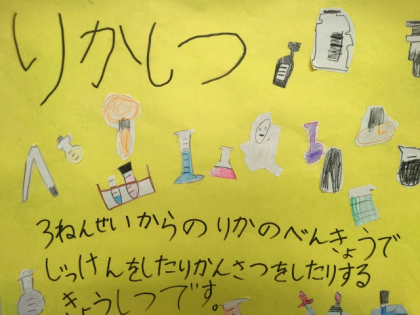 りかしつ
3ねんせいからのりかのべんきょうで
じっけんをしたりかんさつをしたりする
きょうしつです。